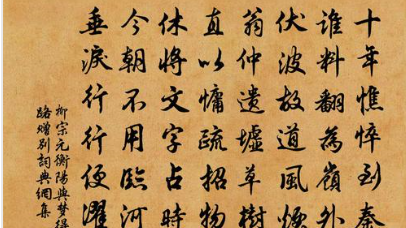 十年憔悴到秦
誰料翻為嶺外
伏波故道風煙
翁仲遺墟草樹
直以慵疏招物
休將文字占時
今朝不用臨河
垂淚行行便濯
柳宗元衡陽與夢得
路贈別詞典網集